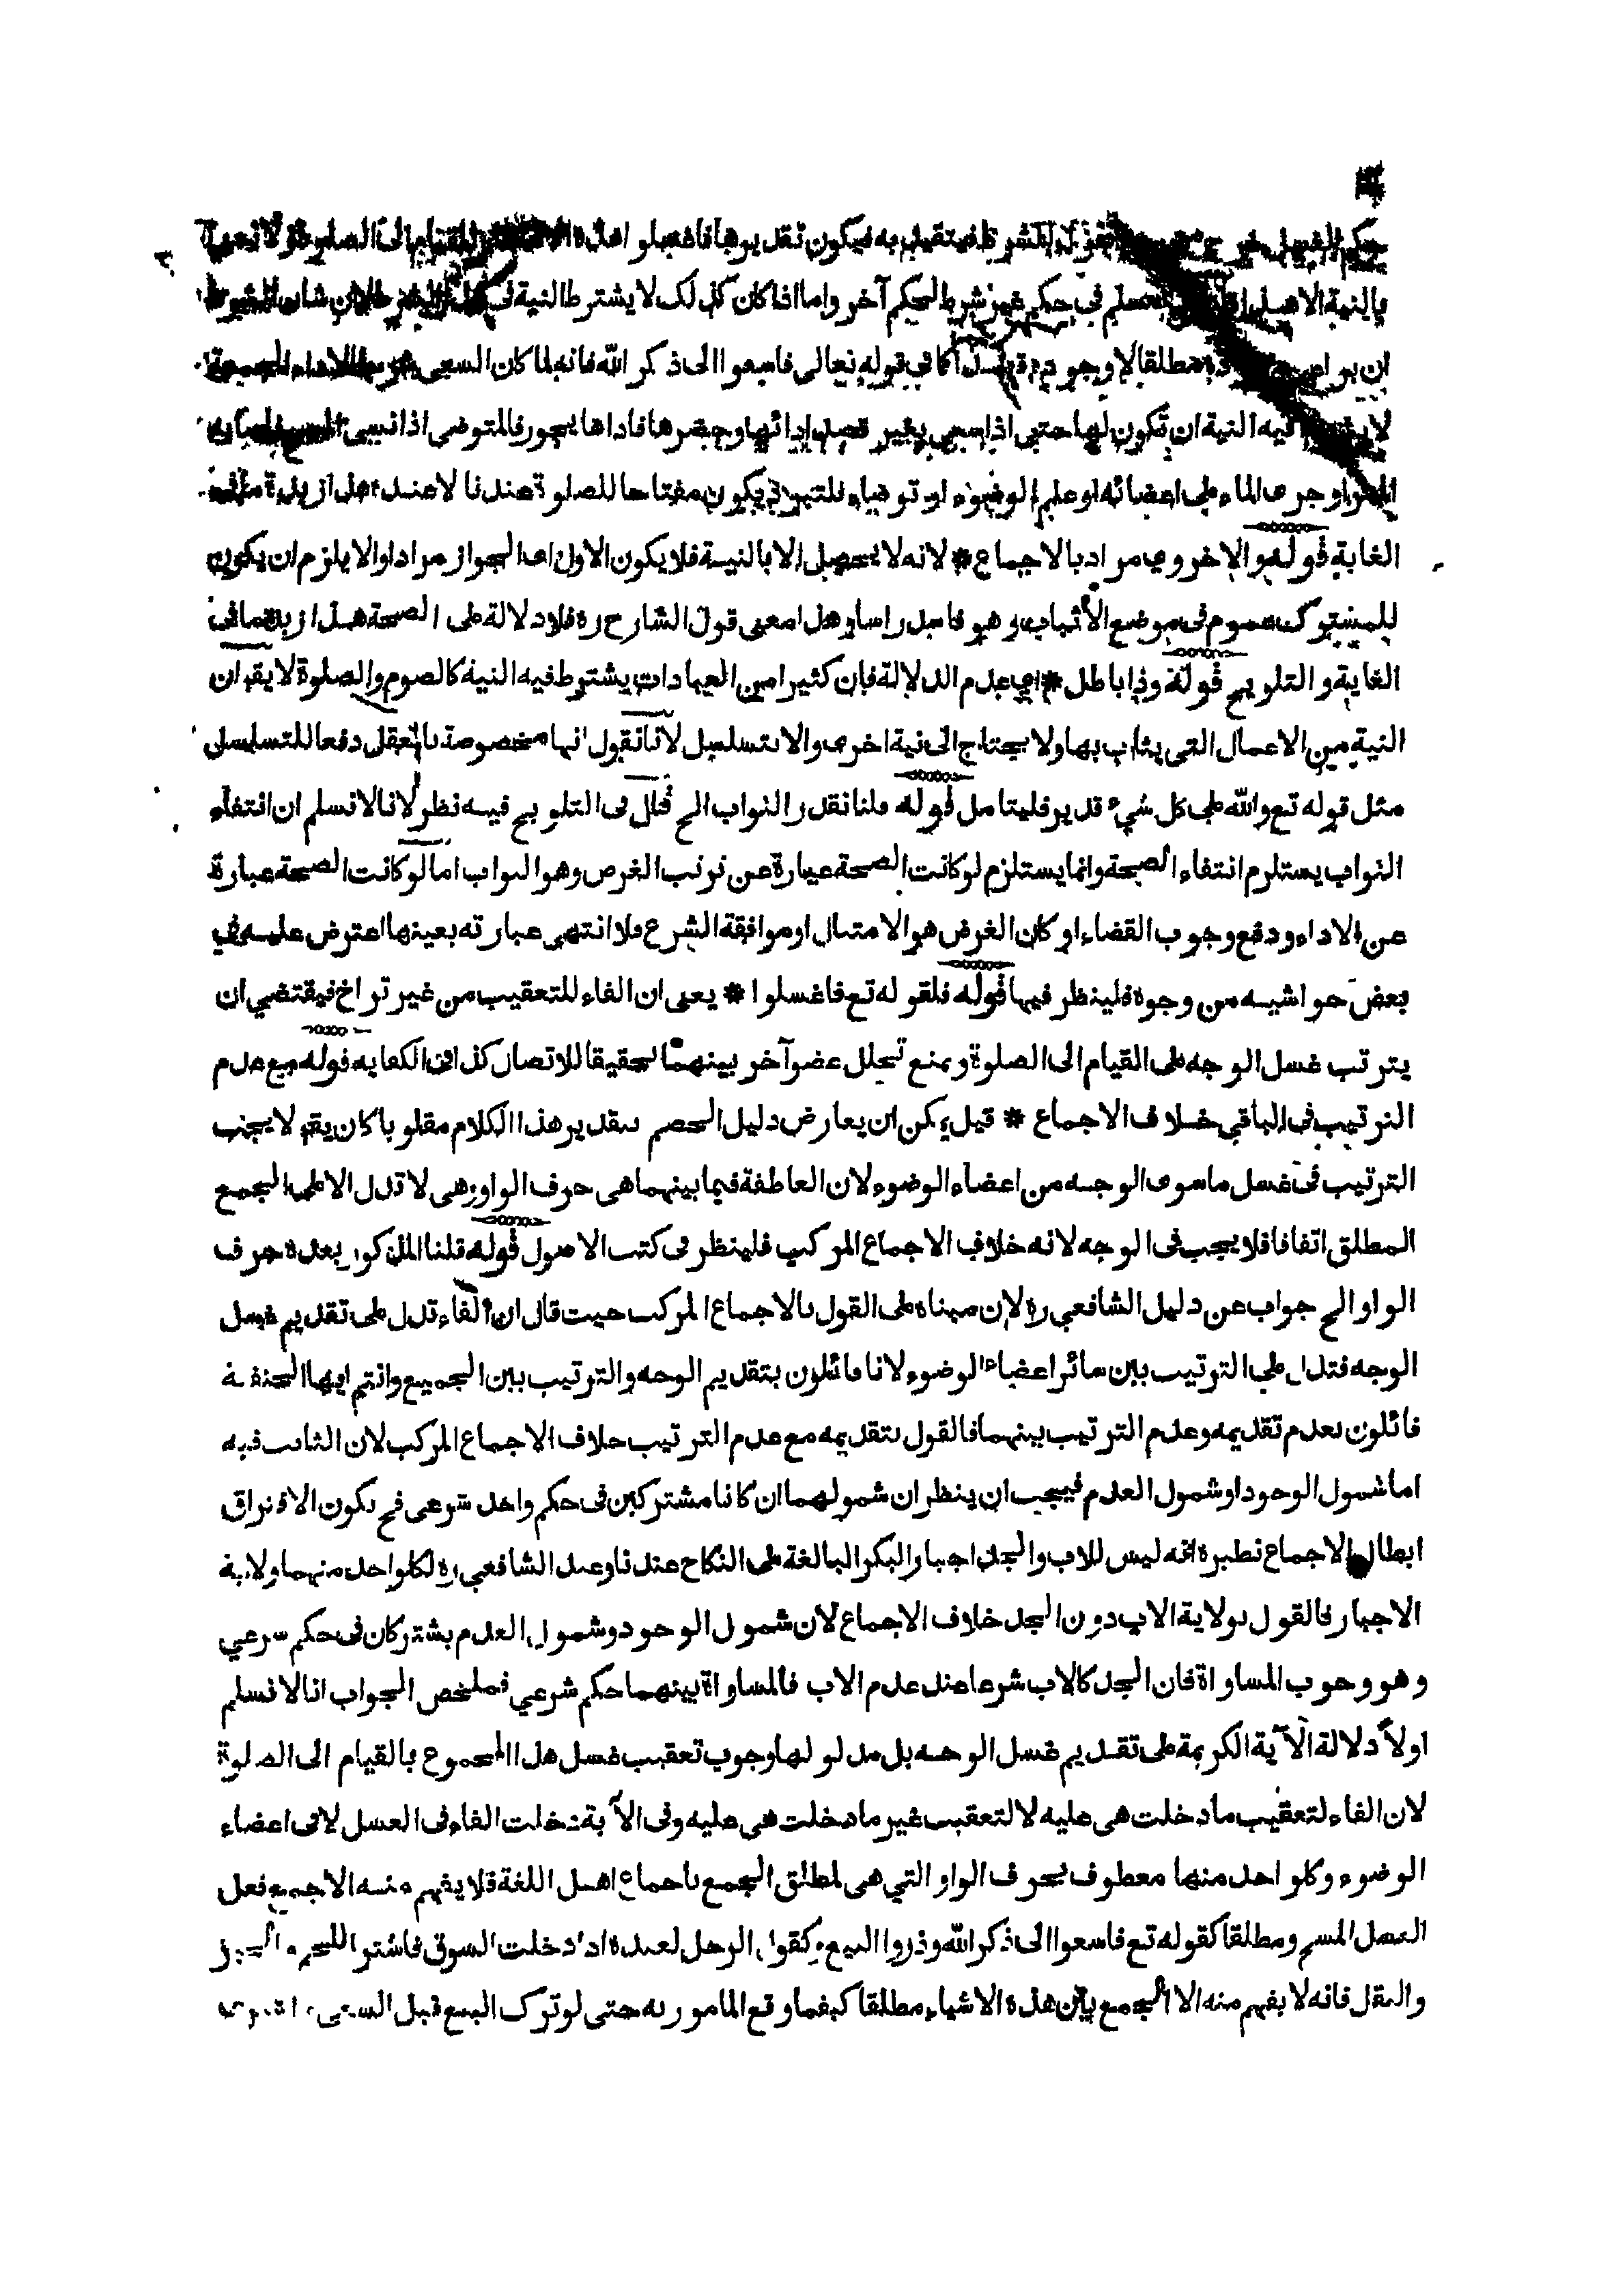 فيتقيد به فيكون تقديرها فاغسلوا هذه للقيام الى الصلوة
بالنية الاصل في حكم غير شرط لحكم آخر واما اذا كان كذلك لا يشترط النية في لان شان الشروط
ان يراعى مطلقا لا وجوده قصدا كما في قوله تعالى فاسعوا الى ذكر الله فانه لما كان السعى شرطا لاداء الجمعة
فيه النية ان تكون لها حتى اذا سعى بغير قصد ادائها وحضرها فاداها يجوز فالمتوضى اذا نسى
او جرى الماء على اعضائه او علم الوضوء او توضاء للتبرد يكون مفتاحا للصلوة عندنا لا عنده هذا زبدة ما فى
الغاية قوله والاخروي مراد بالاجماع # لانه لا يحصل الا بالنية فلا يكون الاول اى الجواز مرادا والا يلزم ان يكون
للمشترك عموم فى موضع الاثبات وهو فاسد راسا وهذا معنى قول الشارح ره فلا دلالة على الصحة هذا زبدة ما فى
الغاية والتلويح قوله وذا باطل # اي عدم الدلالة فان كثيرا من العبادات يشترط فيه النية كالصوم والصلوة لا يقر ان
النية من الاعمال التى يثاب بها ولا يحتاج الى نية اخرى والا يتسلسل لانا نقول انها مخصوصة بالعقل دفعا للتسلسل
مثل قوله تع والله على كل شيء قدير فليتامل قوله قلنا نقدر الثواب الح قال فى التلويح فيه نظر لانا لا نسلم ان انتفاء
الثواب يستلزم انتفاء الصحة وانما يستلزم لو كانت الصحة عبارة عن ترتب الغرض وهو الثواب اما لو كانت الصحة عبارة
عن الاداء ودفع وجوب القضاء او كان الغرض هو الامتثال او موافقة الشرع فلا انتهى عبارته بعينها اعترض عليه في
بعض حواشيه من وجوه فلينظر فيها قوله فلقوله تع فاغسلوا # يعنى ان الفاء للتعقيب من غير تراخ فيقتضي ان
يترتب غسل الوجه على القيام الى الصلوة ويمنع تخلل عضو آخر بينهما تحقيقا للاتصال كذا فى الكفايه قوله مع عدم
الترتيب فى الباقي خلاف الاجماع # قيل يمكن ان يعارض دليل الخصم بتقدير هذا الكلام مقلوبا كان يقر لا يجب
الترتيب فى غسل ما سوى الوجه من اعضاء الوضوء لان العاطفة فيما بينهما هى حرف الواو وهى لا تدل الا على الجمع
المطلق اتفاقا فلا يجب فى الوجه لانه خلاف الاجماع المركب فلينظر فى كتب الاصول قوله قلنا المذكور بعده حرف
الواو الح جواب عن دليل الشافعي ره لان مبناه على القول بالاجماع المركب حيث قال ان الفاء تدل على تقديم غسل
الوجه فتدل على الترتيب بين سائر اعضاء الوضوء لانا قائلون بتقديم الوجه والترتيب بين الجميع وانتم ايها الحنفية
قائلون بعدم تقديمه وعدم الترتيب بينهما فالقول بتقديمه مع عدم الترتيب خلاف الاجماع المركب لان الثابت فيه
اما شمول الوجود او شمول العدم فيجب ان ينظر ان شمولهما ان كانا مشتركين فى حكم واحد شرعى فح يكون الافتراق
ابطال الاجماع نظيره انه ليس للاب والجد اجبار البكر البالغة على النكاح عندنا وعند الشافعي ره لكل واحد منهما ولاية
الاجبار فالقول بولاية الاب دون الجد خلاف الاجماع لان شمول الوجود وشمول العدم يشتركان فى حكم شرعي
وهو وجوب المساواة فان الجد كالاب شرعا عند عدم الاب فالمساواة بينهما حكم شرعي فملخص الجواب انا لا نسلم
اولا دلالة الآية الكريمة على تقديم غسل الوجه بل مدلولها وجوب تعقيب غسل هذا المجموع بالقيام الى الصلوة
لان الفاء لتعقيب ما دخلت هى عليه لا لتعقيب غير ما دخلت هى عليه وفى الآية دخلت الفاء فى الغسل لا فى اعضاء
الوضوء وكل واحد منها معطوف بحرف الواو التي هى لمطلق الجمع باجماع اهل اللغة فلا يفهم منه الا جمع فعل
الغسل المسح ومطلقا كقوله تع فاسعوا الى ذكر الله وذروا البيع وكقول الرجل لعبده اذا دخلت السوق فاشتر اللحم والخبز
والبقل فانه لا يفهم منه الا الجمع بين هذه الاشياء مطلقا كيفما وقع المامور به حتى لو ترك البيع قبل السعى